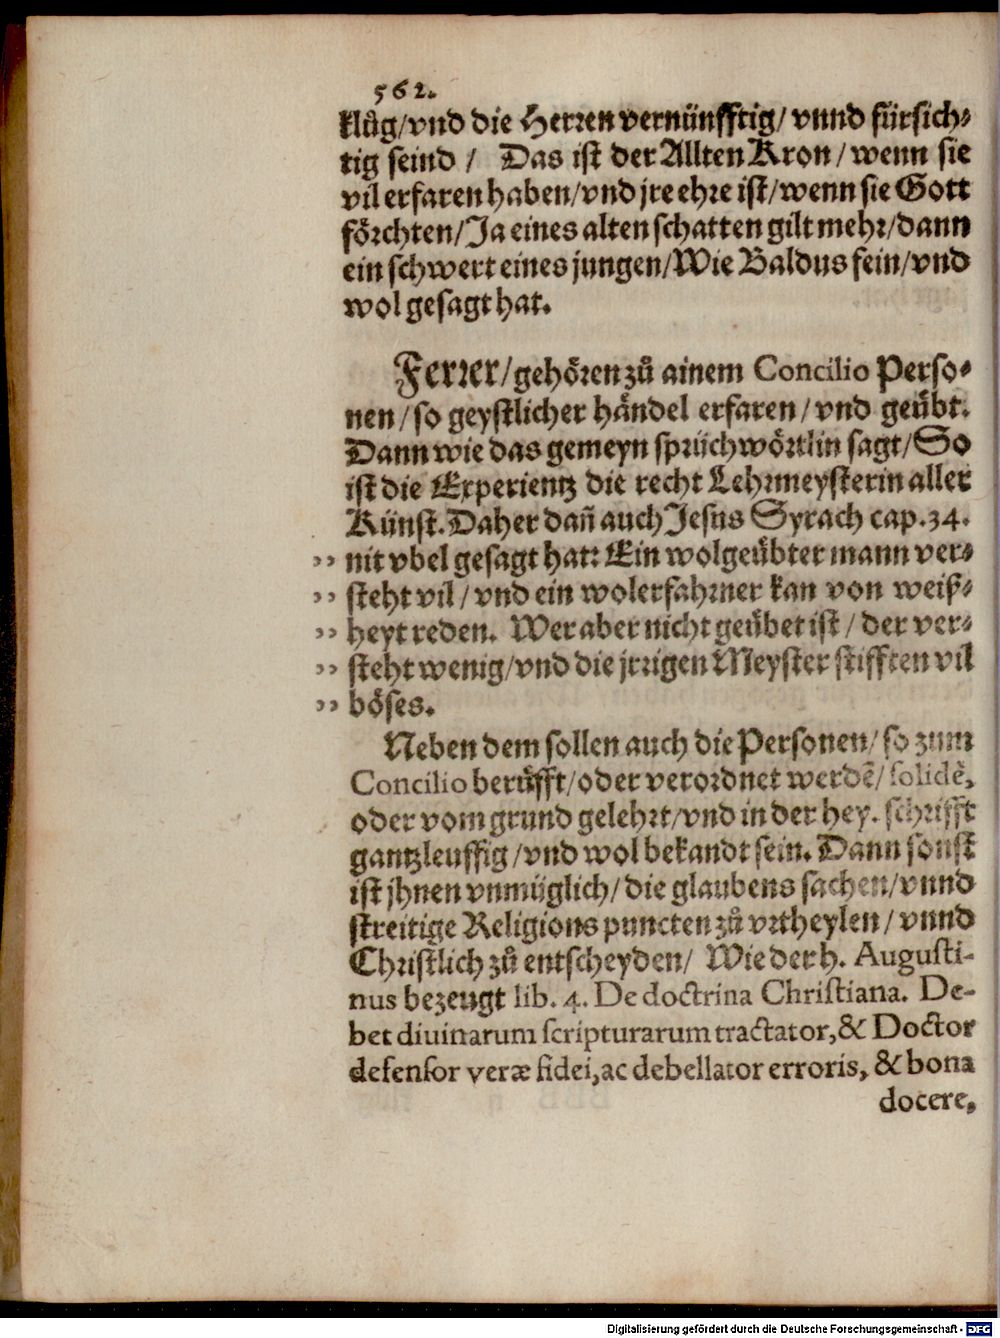 562.
klůg/vnd die Herren vernünfftig/ vnnd fürsich-
tig seind / Das ist der Allten Kron / wenn sie
vil erfaren haben/vnd jre ehre ist/wenn sie Gott
förchten/Ja eines alten schatten gilt mehr/dann
ein schwert eines jungen/Wie Baldus fein/vnd
wol gesagt hat.
Ferrer/gehören zů ainem Concilio Perso-
nen/so geystlicher händel erfaren/vnd geübt.
Dann wie das gemeyn sprüchwörtlin sagt/So
ist die Experientz die recht Lehrmeysterin aller
Künst. Daher dañ auch Jesus Syrach cap. 34.
,, nit vbel gesagt hat: Ein wolgeübter mann ver-
,, steht vil / vnd ein wolerfahrner kan von weiß-
,, heyt reden. Wer aber nicht geübet ist / der ver-
,, steht wenig/vnd die jrrigen Meyster stifften vil
,, böses.
Neben dem sollen auch die Personen/ so zum
Concilio berůfft/oder verordnet werdẽ/ solidè,
oder vom grund gelehrt/vnd in der hey. schrifft
gantzleuffig/vnd wol bekandt sein. Dann sonst
ist jhnen vnmüglich/ die glaubens sachen/vnnd
streitige Religions puncten zů vrtheylen/ vnnd
Christlich zů entscheyden/ Wie der h. Augusti-
nus bezeugt lib. 4. De doctrina Christiana. De-
bet diuinarum scripturarum tractator, & Doctor
defensor veræ fidei, ac debellator erroris, & bona
docere,
Digitalisierung gefördert durch die Deutsche Forschungsgemeinschaft - DFG